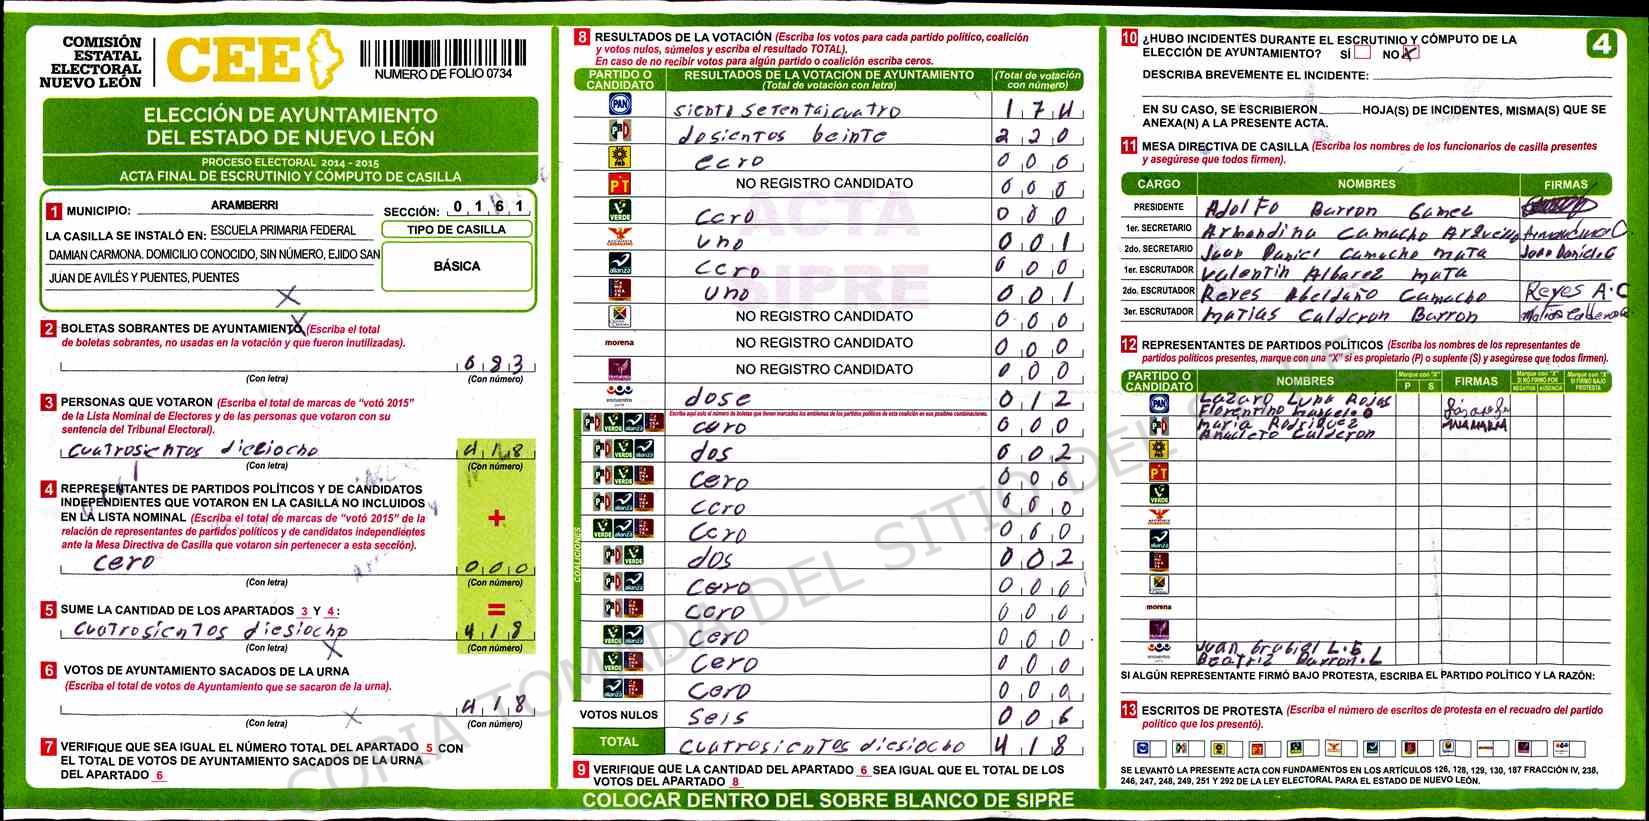 COMISIÓN
ESTATAL
ELECTORAL
NUEVO LEÓN
CEE
NUMERO DE FOLIO 0734
ELECCIÓN DE AYUNTAMIENTO
DEL ESTADO DE NUEVO LEÓN
PROCESO ELECTORAL 2014 - 2015
ACTA FINAL DE ESCRUTINIO Y CÓMPUTO DE CASILLA
1 MUNICIPIO: ARAMBERRI SECCIÓN: 0 1 6 1
LA CASILLA SE INSTALÓ EN: ESCUELA PRIMARIA FEDERAL
DAMIAN CARMONA. DOMICILIO CONOCIDO, SIN NÚMERO, EJIDO SAN
JUAN DE AVILÉS Y PUENTES, PUENTES
TIPO DE CASILLA
BÁSICA
2 BOLETAS SOBRANTES DE AYUNTAMIENTO (Escriba el total
de boletas sobrantes, no usadas en la votación y que fueron inutilizadas).
6 8 3
(Con letra) (Con número)
3 PERSONAS QUE VOTARON (Escriba el total de marcas de "votó 2015"
de la Lista Nominal de Electores y de las personas que votaron con su
sentencia del Tribunal Electoral).
cuatrosientos diesiocho 4 1 8
(Con letra) (Con número)
4 REPRESENTANTES DE PARTIDOS POLÍTICOS Y DE CANDIDATOS
INDEPENDIENTES QUE VOTARON EN LA CASILLA NO INCLUIDOS
EN LA LISTA NOMINAL (Escriba el total de marcas de "votó 2015" de la
relación de representantes de partidos políticos y de candidatos independientes
ante la Mesa Directiva de Casilla que votaron sin pertenecer a esta sección).
+
cero 0 0 0
(Con letra) (Con número)
5 SUME LA CANTIDAD DE LOS APARTADOS 3 Y 4:
=
cuatrosientos diesiocho 4 1 8
(Con letra) (Con número)
6 VOTOS DE AYUNTAMIENTO SACADOS DE LA URNA
(Escriba el total de votos de Ayuntamiento que se sacaron de la urna).
4 1 8
(Con letra) (Con número)
7 VERIFIQUE QUE SEA IGUAL EL NÚMERO TOTAL DEL APARTADO 5 CON
EL TOTAL DE VOTOS DE AYUNTAMIENTO SACADOS DE LA URNA
DEL APARTADO 6
8 RESULTADOS DE LA VOTACIÓN (Escriba los votos para cada partido político, coalición
y votos nulos, súmelos y escriba el resultado TOTAL).
En caso de no recibir votos para algún partido o coalición escriba ceros.
PARTIDO O CANDIDATO RESULTADOS DE LA VOTACIÓN DE AYUNTAMIENTO (Total de votación con letra) (Total de votación con número)
PAN siento setentaicuatro 1 7 4
PRD dosientos beinte 2 2 0
PRD cero 0 0 0
PT NO REGISTRO CANDIDATO 0 0 0
VERDE cero 0 0 0
uno 0 0 1
alianza cero 0 0 0
uno 0 0 1
NO REGISTRO CANDIDATO 0 0 0
morena NO REGISTRO CANDIDATO 0 0 0
NO REGISTRO CANDIDATO 0 0 0
encuentro dose 0 1 2
COALICIONES
Escriba aquí solo el número de boletas que tienen marcados los emblemas de los partidos políticos de esta coalición en sus posibles combinaciones.
cero 0 0 0
dos 0 0 2
cero 0 0 0
cero 0 0 0
cero 0 0 0
dos 0 0 2
cero 0 0 0
cero 0 0 0
cero 0 0 0
cero 0 0 0
cero 0 0 0
VOTOS NULOS seis 0 0 6
TOTAL cuatrosientos diesiocho 4 1 8
9 VERIFIQUE QUE LA CANTIDAD DEL APARTADO 6 SEA IGUAL QUE EL TOTAL DE LOS
VOTOS DEL APARTADO 8
COLOCAR DENTRO DEL SOBRE BLANCO DE SIPRE
ACTA
SIPRE
COPIA TOMADA DEL SITIO DEL S
10 ¿HUBO INCIDENTES DURANTE EL ESCRUTINIO Y CÓMPUTO DE LA
ELECCIÓN DE AYUNTAMIENTO? SÍ NO X
4
DESCRIBA BREVEMENTE EL INCIDENTE:
EN SU CASO, SE ESCRIBIERON HOJA(S) DE INCIDENTES, MISMA(S) QUE SE
ANEXA(N) A LA PRESENTE ACTA.
11 MESA DIRECTIVA DE CASILLA (Escriba los nombres de los funcionarios de casilla presentes
y asegúrese que todos firmen).
CARGO NOMBRES FIRMAS
PRESIDENTE Adolfo Barron Gamez
1er. SECRETARIO Armandina Camacho Arguello
2do. SECRETARIO Juan Daniel Camacho mata Juan Daniel C
1er. ESCRUTADOR Valentin Albarez mata
2do. ESCRUTADOR Reyes Abeldaño Camacho Reyes A. C
3er. ESCRUTADOR matias Calderon Barron
12 REPRESENTANTES DE PARTIDOS POLÍTICOS (Escriba los nombres de los representantes de
partidos políticos presentes, marque con una "X" si es propietario (P) o suplente (S) y asegúrese que todos firmen).
PARTIDO O CANDIDATO NOMBRES Marque con "X" P S FIRMAS Marque con "X" SI NO FIRMÓ POR NEGATIVA AUSENCIA Marque con "X" SI FIRMÓ BAJO PROTESTA
PAN Lazaro Luna Rojas
Florentino
maria Rodriguez
Anacleto Calderon
PRD
PT
VERDE
alianza
morena
encuentro Juan Grabiel L. E
Beatriz Barron. L
SI ALGÚN REPRESENTANTE FIRMÓ BAJO PROTESTA, ESCRIBA EL PARTIDO POLÍTICO Y LA RAZÓN:
13 ESCRITOS DE PROTESTA (Escriba el número de escritos de protesta en el recuadro del partido
político que los presentó).
SE LEVANTÓ LA PRESENTE ACTA CON FUNDAMENTOS EN LOS ARTÍCULOS 126, 128, 129, 130, 187 FRACCIÓN IV, 238,
246, 247, 248, 249, 251 Y 292 DE LA LEY ELECTORAL PARA EL ESTADO DE NUEVO LEÓN.